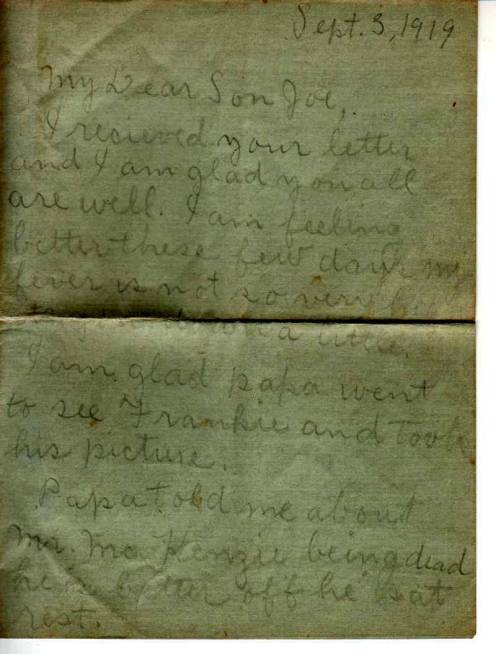 Sept. 3, 1919
My Dear Son Joe,
I recieved your letter
and I am glad you all
are well. I am feeling
better these few days my
fever is not so very
a little.
I am glad papa went
to see Frankie and took
his picture.
Papa told me about
Mr. Mc. Kenzie being dead
he is better off he is at
rest.